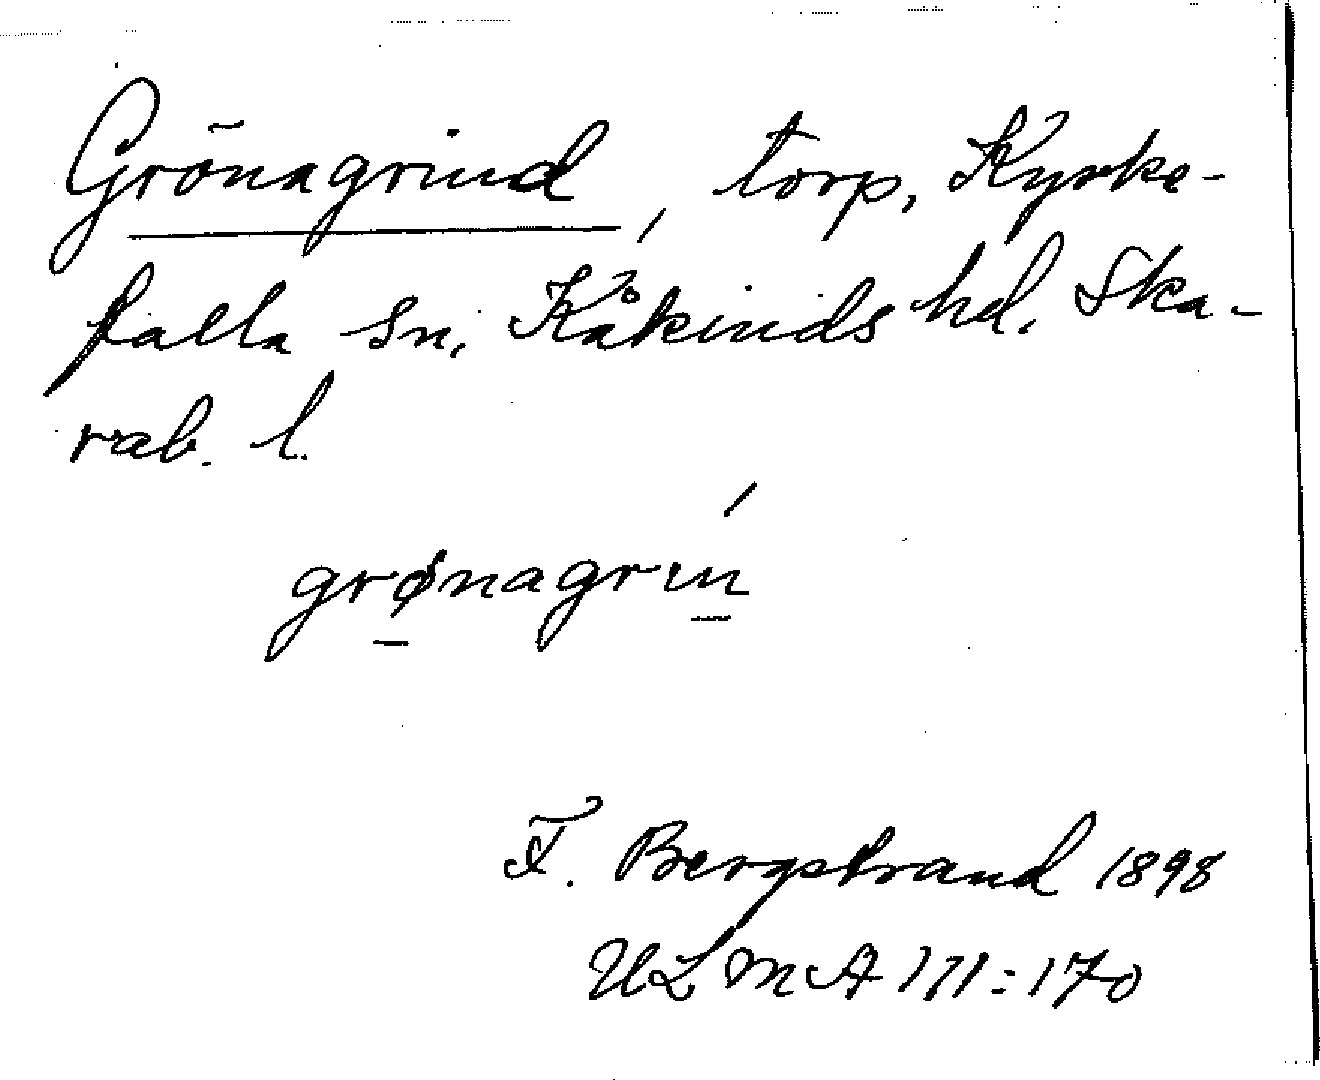 Grönagrind, torp, Kyrke-
falla sn, Kåkinds hd. Ska-
rab. l.
grønagrin
F. Bergstrand 1898
ULMA 111:170